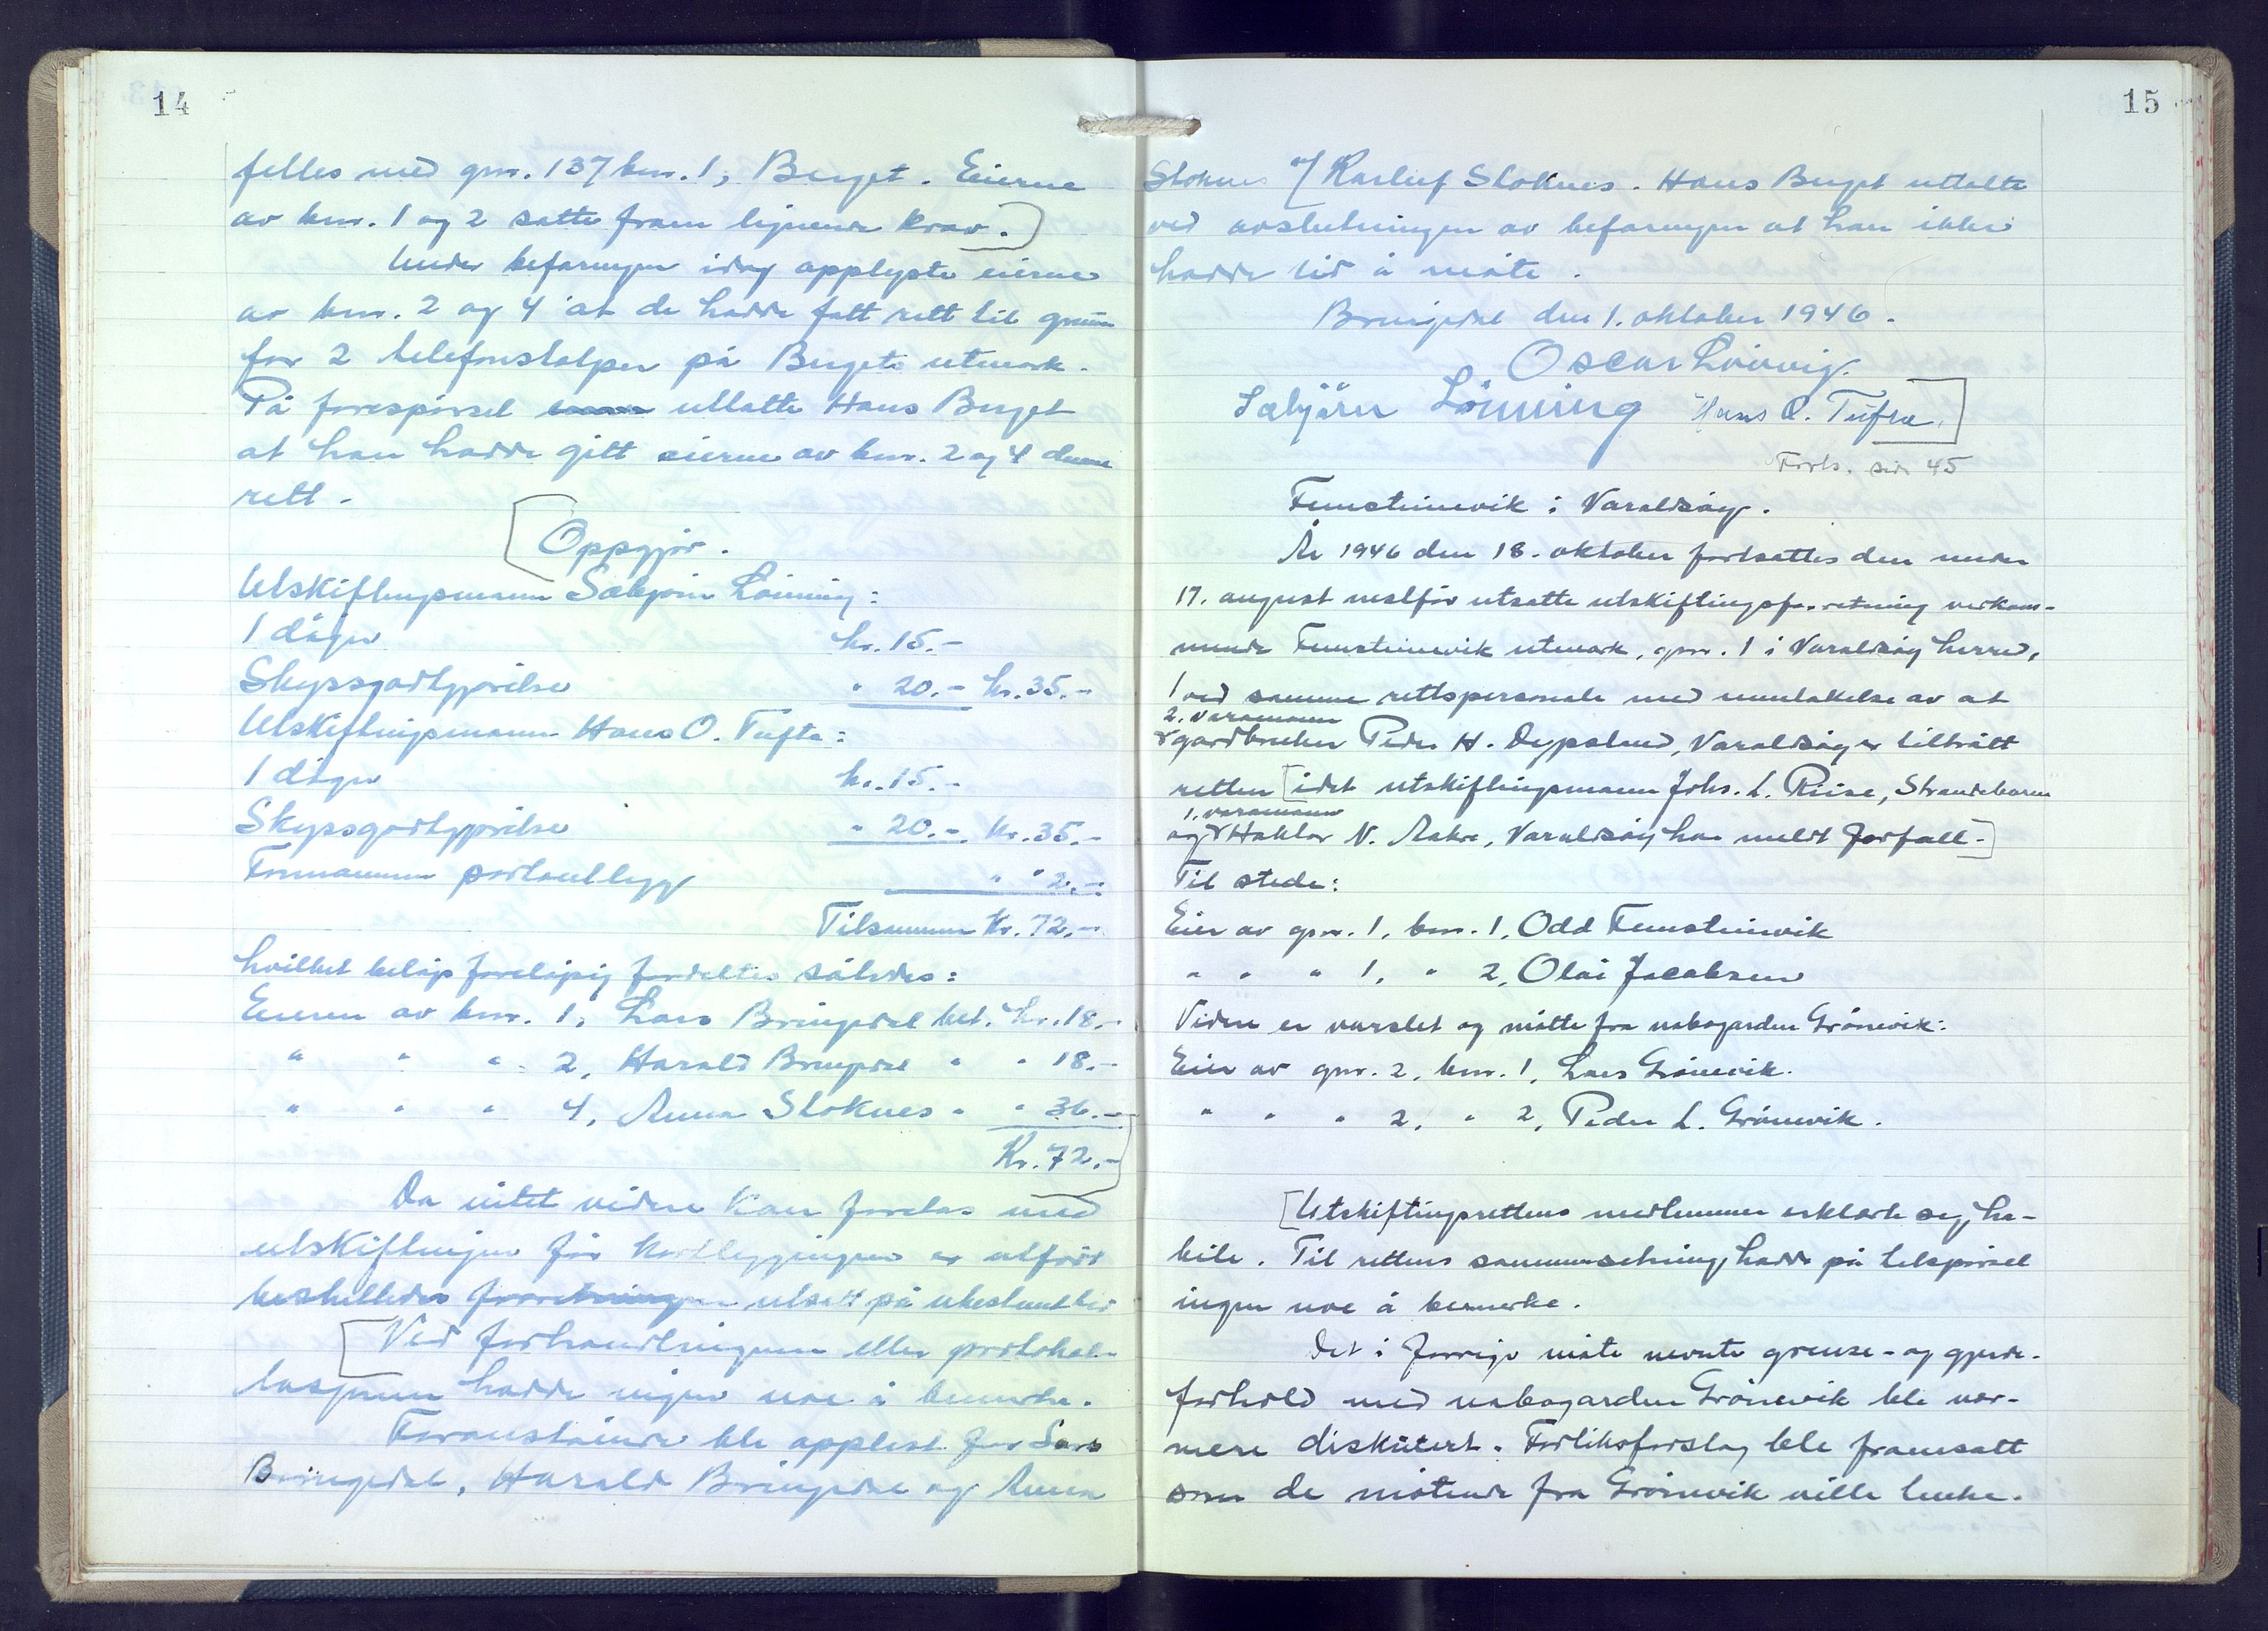 14
felles med gnr. 137 bnr. 1, Berget. Eierne
av bnr. 1 og 2 satte fram lignende krav.]
Under befaringen idag opplyste eierne
av bnr. 2 og 4 at de hadde fått rett til grunn
for 2 telefonstolper på Bergets utmark.
På forespørsel uttalte Hans Berget
at han hadde gitt eierne av bnr. 2 og 4 denne
rett.
[Oppgjør.
Utskiftingsmann Sæbjørn Lönning:
1 døgn kr. 15.-
Skyssgodtgjørelse " 20.- kr. 35.-
Utskiftingsmann Hans O. Tufta:
1 døgn kr. 15.-
Skyssgodtgjørelse " 20.- kr. 35.-
Formannen portoutlegg " " 2.-
Tilsammen kr. 72.-
hvilket beløp foreløpig fordeltes således:
Eieren av bnr. 1, Lars Bringedal bet. kr. 18.-
" " " 2, Harald Bringedal " " 18.-
" " " 4, Anna Stoknes " " 36.-
Kr. 72.-]
Da intet videre kan foretas med
utskiftingen før kartleggingen er utført
besluttedes forretningen utsatt på ubestemt tid
[Ved forhandlingene eller protokol-
lasjonen hadde ingen noe å bemerke.
Foranstående ble opplest for Lars
Bringedal, Harald Bringedal og Anna
15
Stoknes v/ Karluf Stoknes. Hans Berget uttalte
ved avslutningen av befaringen at han ikke
hadde tid å møte.
Bringedal den 1. oktober 1946.
Oscar Lovvig.
Sæbjörn Lönning Hans O. Tufta.]
Forts. side 45
Femsteinevik i Varaldsøy.
År 1946 den 18. oktober fortsattes den under
17. august nestfør utsatte utskiftingsforretning vedkom-
mende Femsteinevik utmark, gnr. 1 i Varaldsøy herred,
ved samme rettspersonale med unntakelse av at
2. varamann
gardbruker Peder H. Dypsland, Varaldsøy er tiltrått
retten [idet utskiftingsmann Johs. L. Riise, Strandebarm
1. varamann
og Haktor N. Aakre, Varaldsøy har meldt forfall.]
Til stede:
Eier av gnr. 1, bnr. 1, Odd Femsteinevik
" " " 1, " 2, Olai Jacobsen
Videre er varslet og møtte fra nabogarden Grönevik:
Eier av gnr. 2, bnr. 1, Lars Grönevik.
" " " 2, " 2, Peder L. Grönevik.
[Utskiftingsrettens medlemmer erklærte seg ha-
bile. Til rettens sammensetning hadde på tilspørsel
ingen noe å bemerke.
Det i forrige møte nevnte grense- og gjerde-
forhold med nabogarden Grönevik ble nær-
mere diskutert. Forliksforslag ble framsatt
som de møtende fra Grönevik ville tenke-